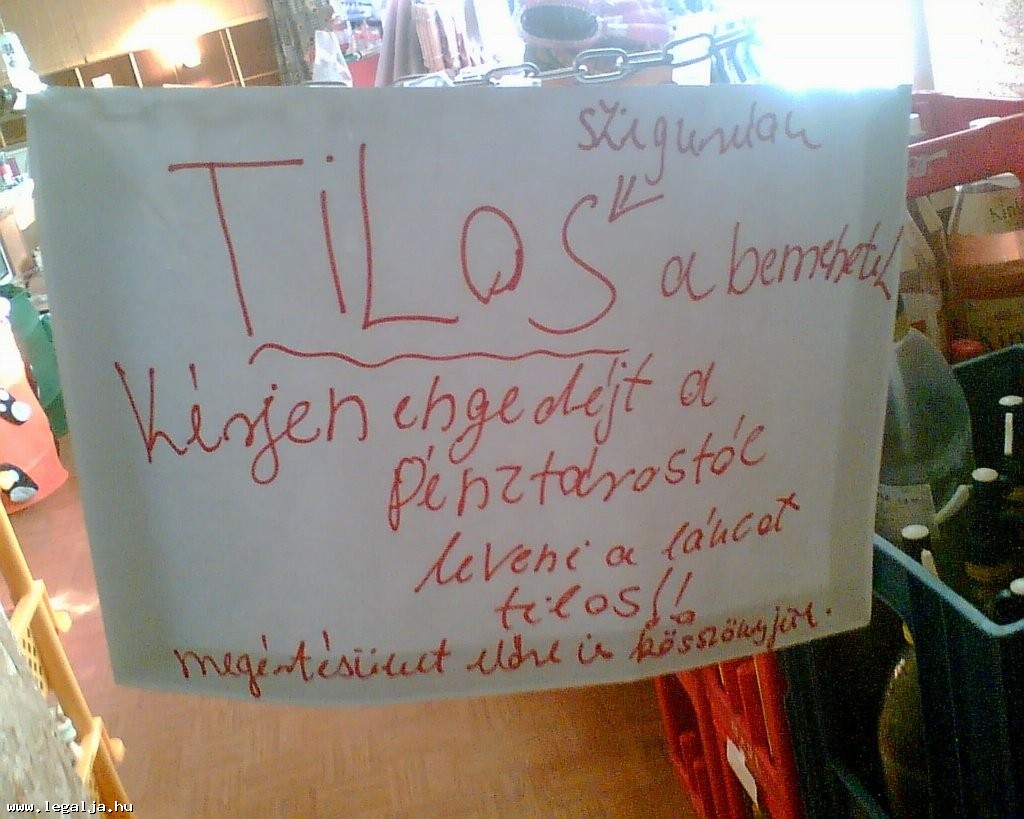 szigurulan
TiLOS
a bemehetel
Kérjen ehgedéjt a
pénztárostól
leveni a láncot
tilos!!
megértésüket előre is kösszönyjük.
www.legalja.hu